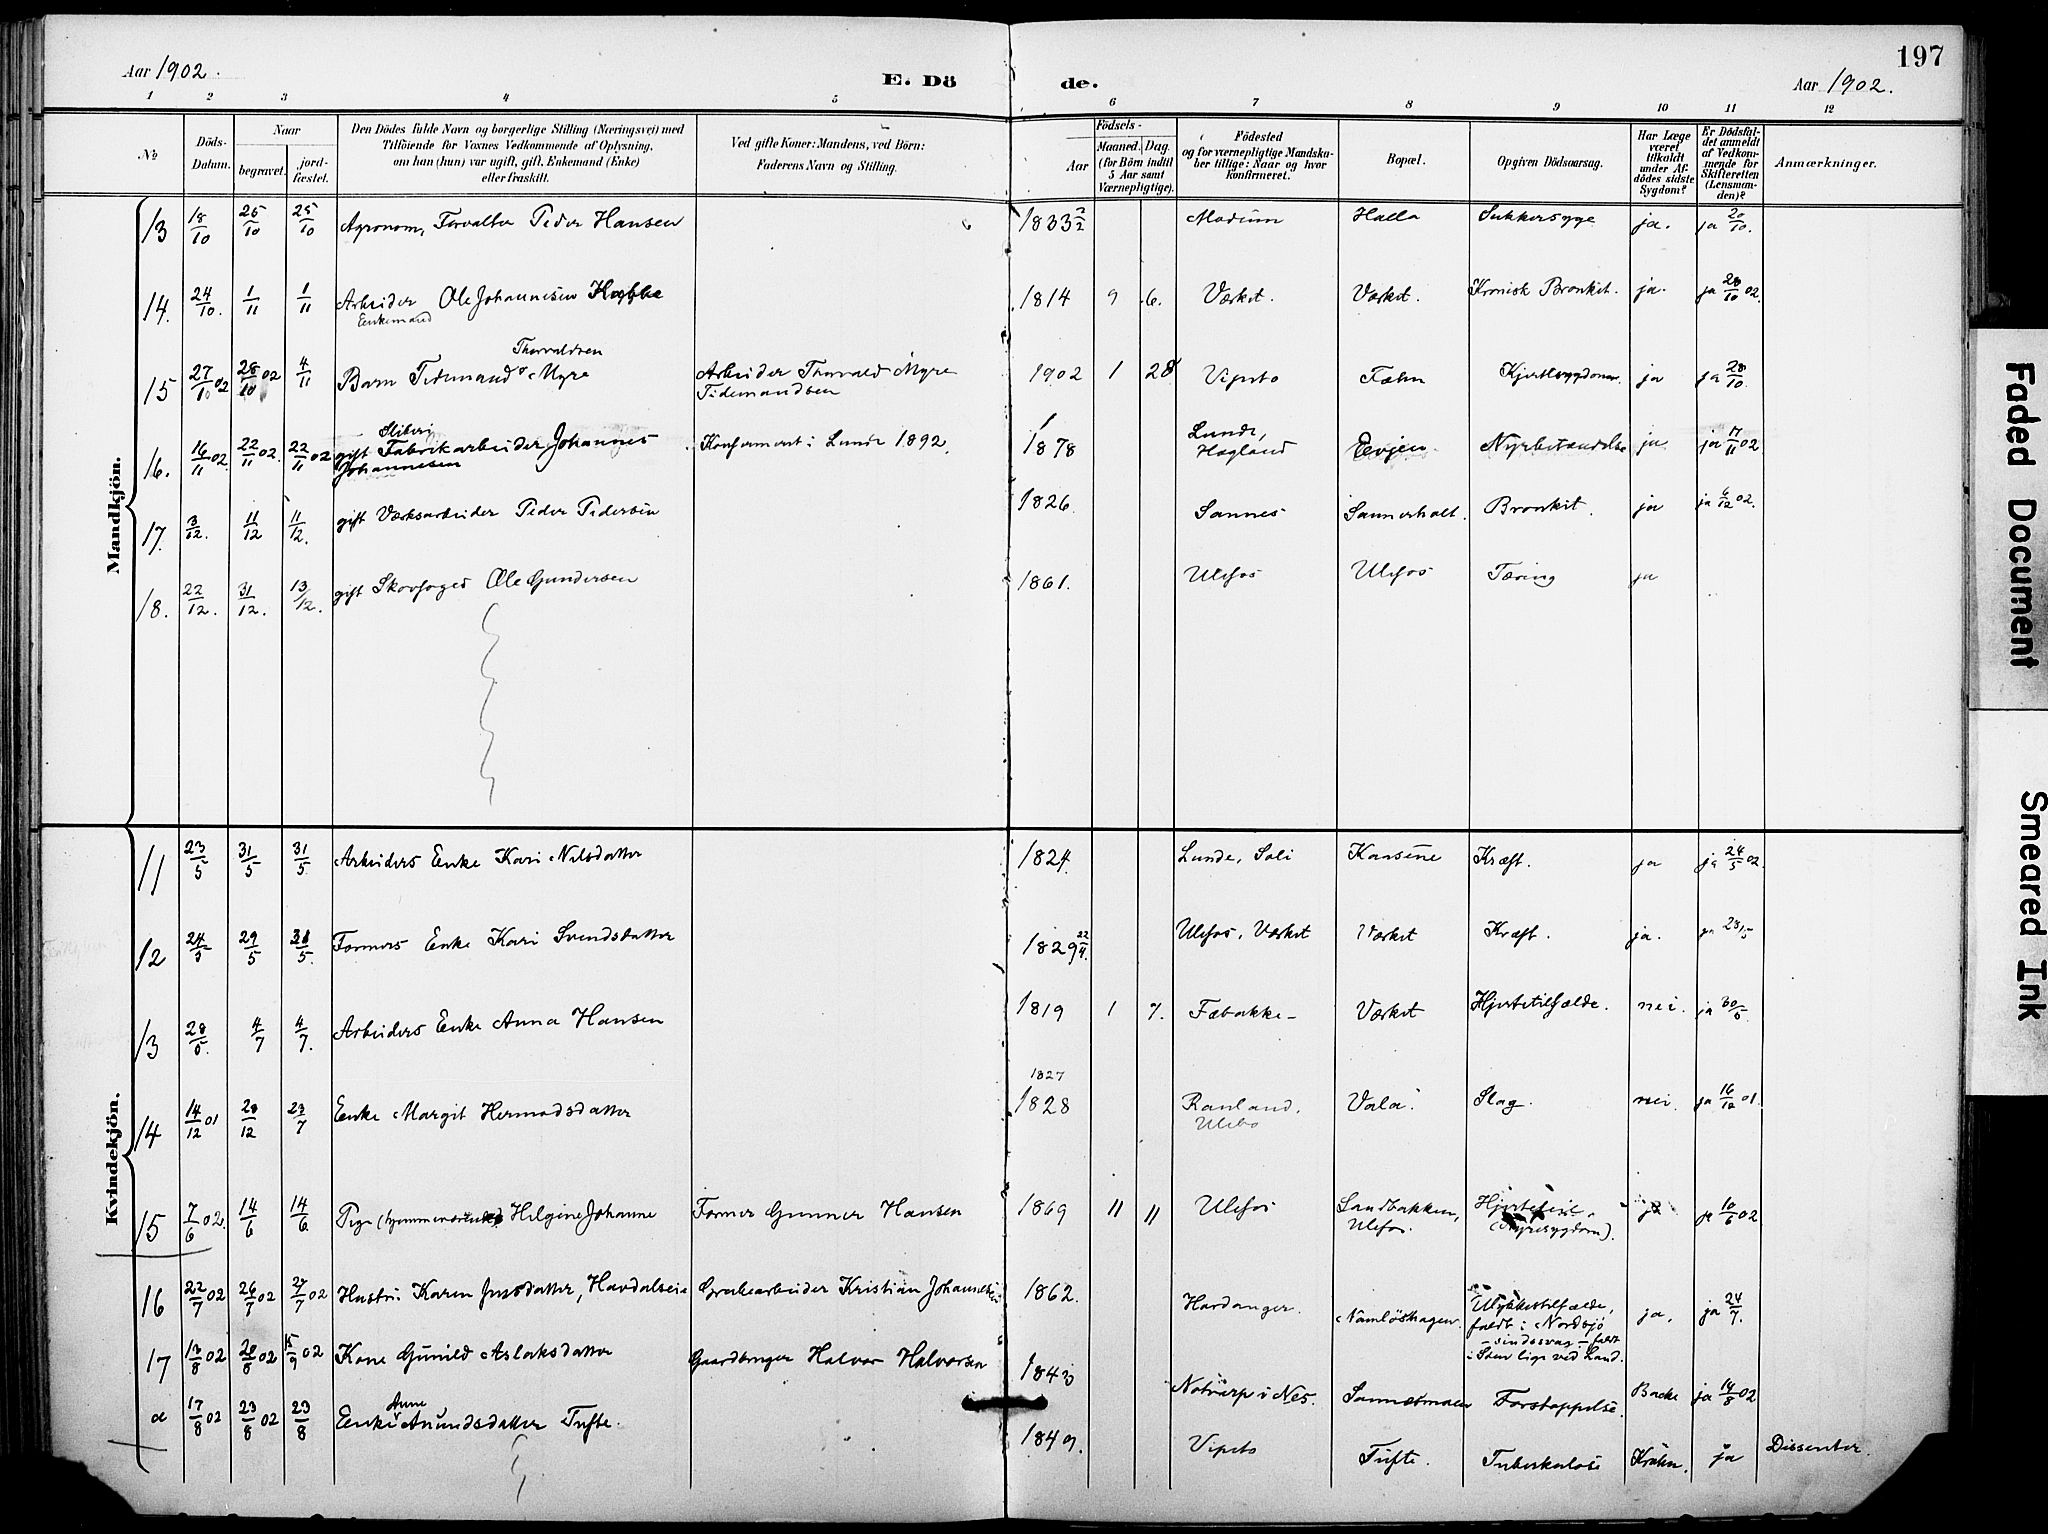 197
Aar 1902.
E. Dö
de.
Aar 1902.
1 2 3 4 5 6 7 8 9 10 11 12
No
Döds-Datum.
Naar
begravet.
jord-fæstet.
Den Dödes fulde Navn og borgerlige Stilling (Næringsvei) med
Tilföiende for Voxnes Vedkommende af Oplysning,
om han (hun) var ugift, gift, Enkemand (Enke)
eller fraskilt.
Ved gifte Koner: Mandens, ved Börn:
Faderens Navn og Stilling.
Födsels-
Aar
Maaned. Dag.
(for Börn indtil
5 Aar samt
Værnepligtige).
Födested
og for værnepligtige Mandska-
ber tillige: Naar og hvor
konfirmeret.
Bopæl.
Opgiven Dödsaarsag.
Har Læge
været
tilkaldt
under Af-
dödes sidste
Sygdom?
Er Dödsfal-
det anmeldt
af Vedkom-
mende for
Skifteretten
(Lensman-
den)?
Anmærkninger.
Mandkjön.
13 18/10 25/10 25/10 Agronom, Forvalter Peder Hansen 1833 Modum Halla Sukkersyge ja. ja 20/10.
14. 24/10. 1/11 1/11 Arbeider Ole Johannesen 1814 9 6. Værket. Værket. Kronisk Bronkit. ja. ja 28/10 02
Enkemand
Thorvaldsen
15 27/10 02 28/10 02 4/11 Barn Tidemand Myre Arbeider Thorvald Myre 1902 1 28 Vipeto Fæhn ja ja 28/10.
Tidemandsen
Sliberi
16. 16/11 02. 22/11 02. 22/11 02 gift Fabrikarbeider Johannes Konfirmeret i Lunde 1892. 1878 Lunde, Evjen. Nyrbetændelse ja ja 17/11 02.
Johannesen Hogland
17. 3/12. 11/12 11/12. gift Værksarbeider Peder Pedersen 1826. Sannes Sannerholt. Bronkit. ja ja 6/12 02.
18. 22/12. 31/12. 13/12. gift Skovfoged Ole Gundersen 1861. Ulefos Ulefos Tæring ja
Kvindekjön.
11 23/5 31/5 31/5. Arbeiders Enke Kari Nilsdatter 1824. Lunde, Soli Kræft. ja ja 24/5 02.
12 24/5 29/5 31/5. Formers Enke Kari Svendsdatter 1829 22/4. Ulefos, Værket Værket Kræft. ja. ja 28/5
13 4/7 4/7. Arbeiders Enke Anna Hansen 1819 1 7. Fæbakke Værket Hjertetilfælde. nei. ja
1827
14 14/12 01 28/12 Enke Margit Hermodsdatter 1828 Ranland, Vala. Slag. nei. ja 16/12 01.
Ulebo
15 7/6 02. 14/6 14/6 Pige Helgine Johanne Former Gunner Hansen 1869 11 11 Ulefos Sandbakken, Hjertefeil ja ja 10/6 02
Ulefos. (Nyresygdom).
16 22/7 02 26/7 02 27/7 02 Hustru Karen Jensdatter, Havdalseie Grubearbeider Kristian Johannesen 1862. Hardanger. Namløshagen. Ulykkestilfælde, ja. ja 24/7.
faldt i Nordsjø
– sindssvag – faldt
17 13/8 02 20/8 02 02 Kone Gunild Aslaksdatter Gaardbruger Halvor Halvorsen 1843 Notvarp i Nes. Forstoppelse. Backe ja 14/8 02
Anne
a 17/8 02 23/8 02 23/8 Enke Anundsdatter Tufte. 1849. Vipeto Tufte. Tuberkulose Krohn. ja Dissenter.
Faded Document
Smeared Ink